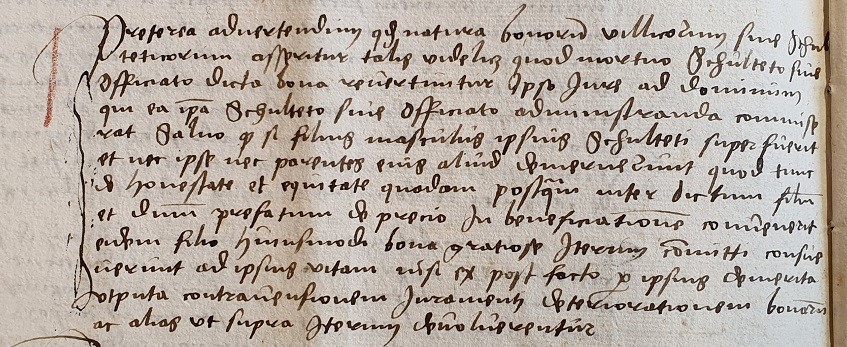 Preterea advertendum qd natura bonorū villicorum sive Schul
teticorum asseritur talis videlicz quod mortuo Schulteto sive
Officiato dicta bona revertuntur Ipso Jure ad dominum
qui ea ipā Schulteto sive Officiato administranda commise
rat Salvo qd si filius masculus ipsius Schulteti superfuerit
et nec ipse nec parentes eius aliud demeruerunt quod tunc
de honestate et equitate quadam postqm̄ inter dictum filiū
et dnm̄ prefatum de precio In beneficiatione convenerit
eidem filio huiusmodi bona gratiose Iterum cōmitti consue
verunt ad ipsius vitam nisi ex post facto p ipsius demerita
utputa contravensionem Juramenti deteriorationem bonorū
ac alias ut supra Iterum devolverentur